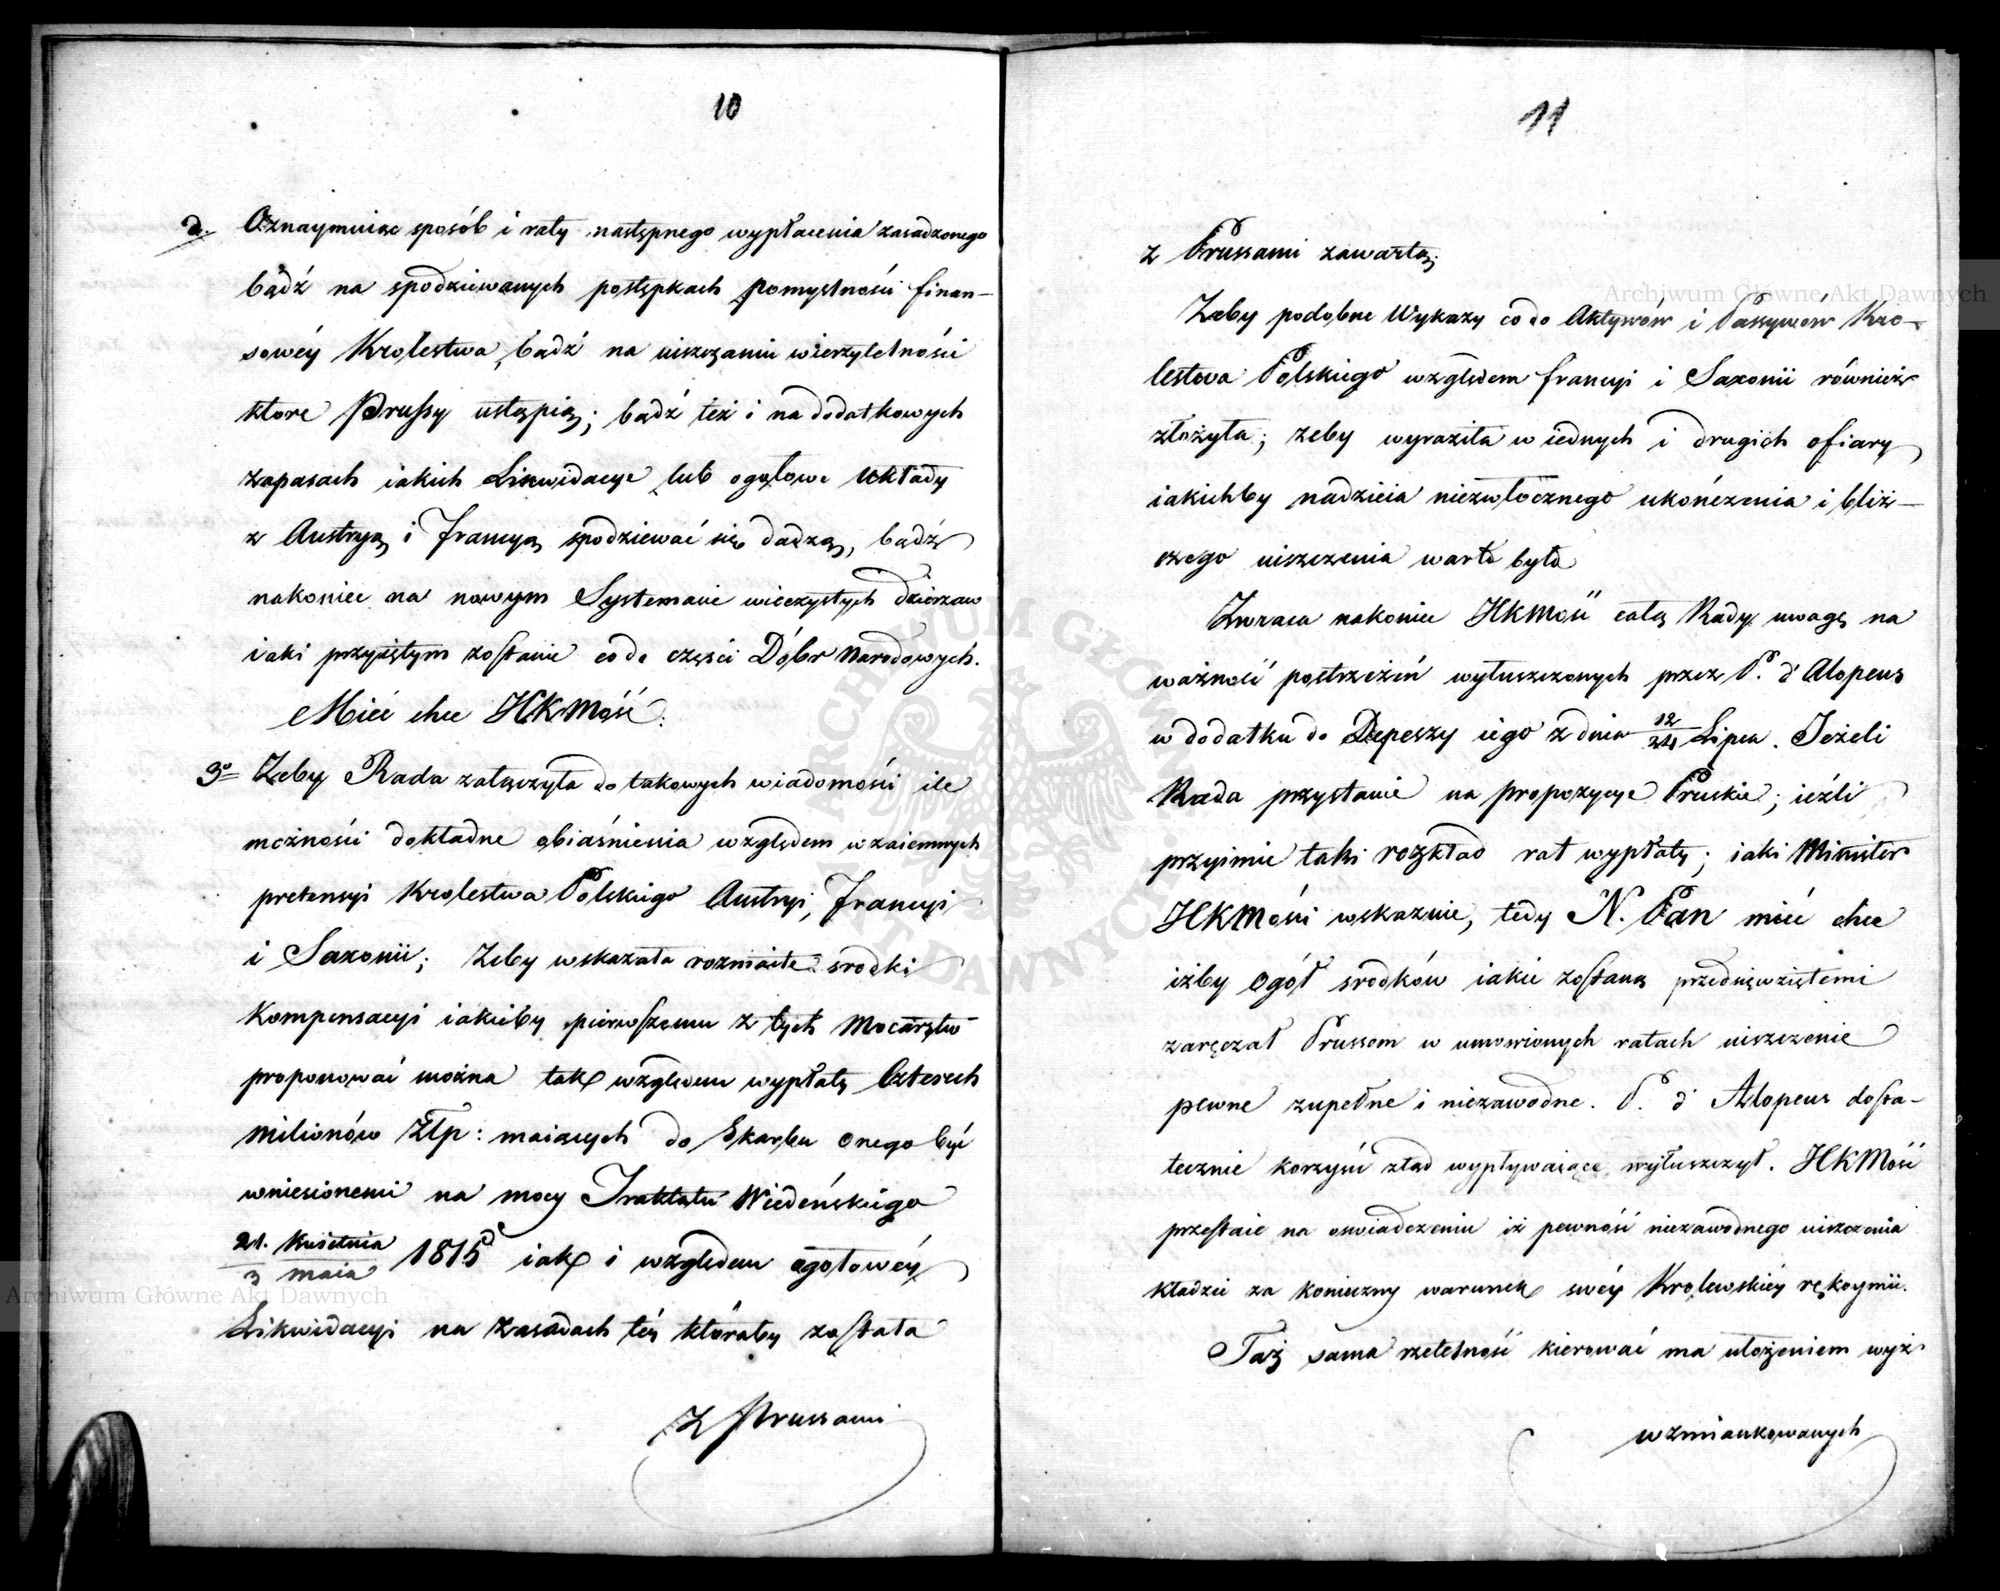 10
d. Oznaymuiąc sposób i raty następnego wypłacenia zasadzonego
bądź na spodziewanych postępkach pomyslnośći finan-
sowéy Krolestwa, bądź na uiszczaniu wierzytelnośći
ktore Prussy ustąpią; bądź też i na dodatkowych
zapasach iakich Likwidacye lub ogołowe Układy
z Austryą i Francyą spodziewać się dadzą, bądź
nakoniec na nowym Systemacie wieczystych dzierzaw
iaki przyiętym zostanie co do części Dóbr Narodowych.
Mieć chce JKMość.
3º Zeby Rada załączyła do takowych wiadomośći ile
możnośći dokładne obiaśnienia względem wzaiemnych
pretensyi Krolestwa Polskiego Austryi, Francyi
i Saxonii; Zeby wskazała rozmaite srodki
Kompensacyi iakieby pierwszemu z tych Mocarstw
proponować można tak względem wypłaty Czterech
Milionów Złp: maiących do Skarbu onego być
wniesionemi na mocy Traktatu Wiedeńskiego
21. Kwietnia
3 maia 1815 iak i względem ogołowéy
Likwidacyi na zasadach téy któraby została
z Prussami
11
z Prussami zawartą;
Zeby podobne Wykazy co do Aktywów i Passywów Kro-
lestwa Polskiego względem francyi i Saxonii również
złożyła; zeby wyraziła w iednych i drugich ofiary
iakichby nadzieia niezwłocznego ukończenia i bliż-
szego uiszczenia warta była
Zwraca nakoniec JKMość całą Rady uwagę na
ważność postrzeżeń wyłuszczonych przez P. d'Alopeus
w dodatku do Depeszy iego z dnia 12/24 Lipca. Jeżeli
Rada przystanie na propozycye Pruskie; ieźli
przyimie taki rozkład rat wypłaty; iaki Minister
JKMośći wskaznie, tedy N. Pan mieć chce
iżby Ogół srodków iakie zostaną przedsięwziętemi
zaręczał Prussom w umowionych ratach uiszczenie
pewne zupełne i niezawodne. P. d'Alopeus dosta-
tecznie korzyśći ztąd wypływaiące wyłuszczył. JKMość
przestaie na oswiadczeniu iż pewność niezawodnego uiszczenia
kładzie za konieczny warunek swéy Krolewskiéy rękoymii.
Taż sama rzetelność kierować ma ułożeniem wyż
wzmiankowanych
Archiwum Główne Akt Dawnych
Archiwum Główne Akt Dawnych
ARCHIWUM GŁÓWNE AKT DAWNYCH